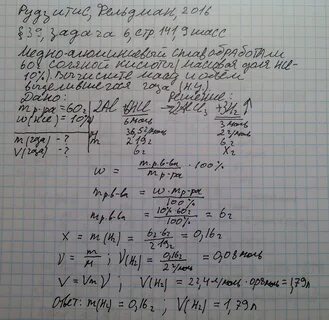 Рудзитис, Фельдман, 2016
§39, задача 6, стр 141 9 класс
Медно-алюминиевой сплав обработали
60г соляной кислоты (массовая доля HCl-
10%). Вычислите массу и объем
выделившегося газа (н.у.)
Дано: Решение:
m р-ра = 60г 2Al + 6HCl → 2AlCl3 + 3H2
w(HCl) = 10% 6моль 3моль
M 36,5г/моль 2г/моль
m(газа) -? m 219г 6г
V(газа) -? 6г xг
w = m р.в-ва / m р-ра · 100%
m р.в-ва = w · m р-ра / 100%
m р.в-ва = 10% · 60г / 100% = 6г
X = m(H2) = 6г · 6г / 219г = 0,16г
ν = m / M ; ν(H2) = 0,16г / 2г/моль = 0,08моль
V = Vm · ν ; V(H2) = 22,4 л/моль · 0,08моль = 1,79л
Ответ: m(H2) = 0,16г ; V(H2) = 1,79л